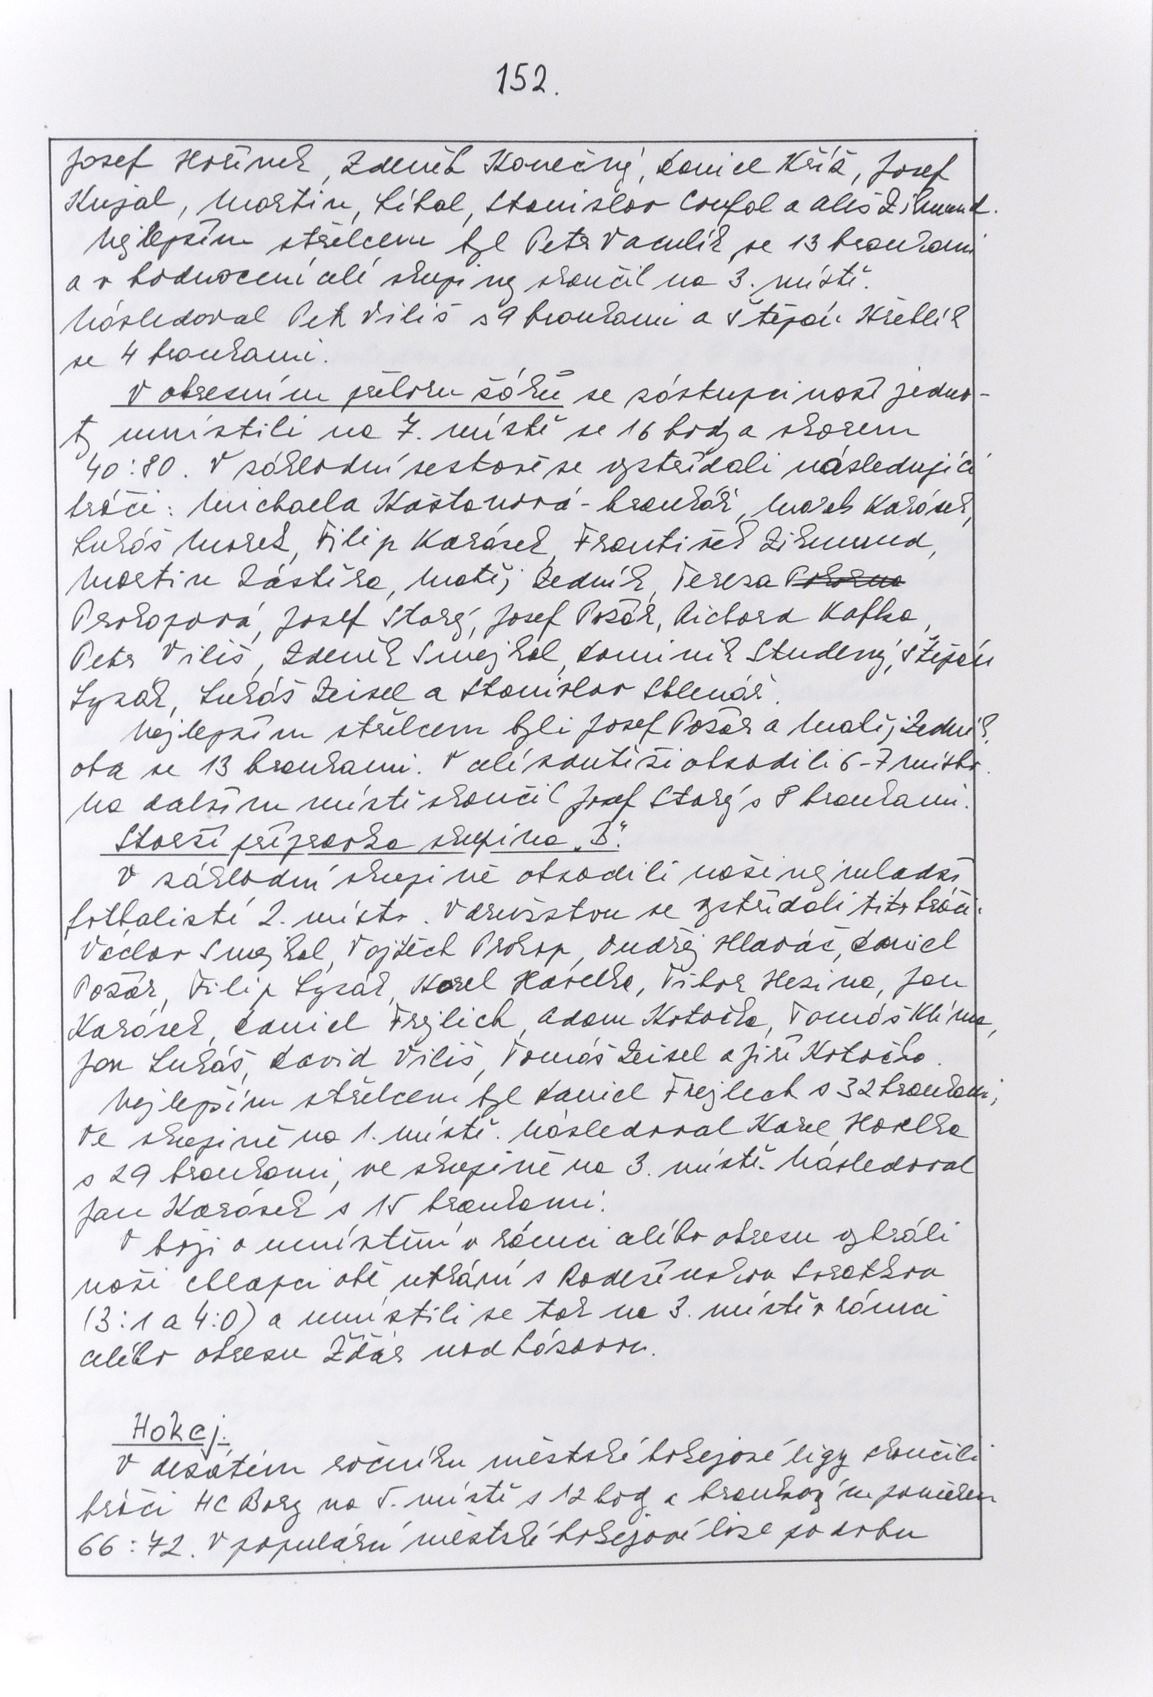 152.
Josef Hořínek, Zdeněk Konečný, Daniel Kříž, Josef
Kujal, Martin Líbal, Stanislav Coufal a Aleš Zikmund.
Nejlepším střelcem byl Petr Vaculík se 13 brankami
a v hodnocení celé skupiny skončil na 3. místě.
Následoval Petr Viliš s 9 brankami a Štěpán
se 4 brankami.
V okresním přeboru žáků se zástupci naší jedno-
ty umístili na 7. místě se 16 body a skorem
40:80. V základní sestavě se vystřídali následující
hráči: Michaela Kaštanová - brankář, Marek Karásek,
Lukáš Marek, Filip Karásek, František Zikmund,
Martin Zástěra, Matěj Zedník, Tereza Pokorna
Prokopová, Josef Starý, Josef Požár, Richard Kafka,
Petr Viliš, Zdeněk Smejkal, Dominik Studený, Štěpán
Lysák, Lukáš Zeisel a Stanislav Sklenář.
Nejlepším střelcem byli Josef Požár a Matěj Zedník,
oba se 13 brankami. V celé soutěži obsadili 6-7 místo.
Na dalším místě skončil Josef Starý s 8 brankami.
Starší přípravka skupina "B".
V základní skupině obsadili naši nejmladší
fotbalisté 2. místo. V družstvu se vystřídali tito hráči:
Václav Smejkal, Vojtěch Prokop, Ondřej Hlaváč, Daniel
Požár, Filip Lysák, Karel Havelka, Tibor Hesina, Jan
Karásek, Daniel Frejlich, Adam Kotačka, Tomáš Klíma,
Jan Lukáš, David Viliš, Tomáš Zeisel a Jiří Kotačka.
Nejlepším střelcem byl Daniel Frejlech s 32 brankami,
ve skupině na 1. místě. Následoval Karel Havelka
s 29 brankami, ve skupině na 3. místě. Následoval
Jan Karásek s 15 brankami.
V boji o umístění v rámci celého okresu vyhráli
naši chlapci obě utkání s Radešínskou Svratkou
(3:1 a 4:0) a umístili se tak na 3. místě v rámci
celého okresu Žďár nad Sázavou.
Hokej.
V desátém ročníku městské hokejové ligy skončili
hráči HC Bory na 5. místě s 12 body a brankovým poměrem
66:72. V populární městské hokejové lize po dobu